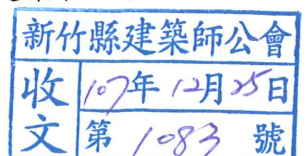 新竹縣建築師公會
收文
107年12月25日
第1083號